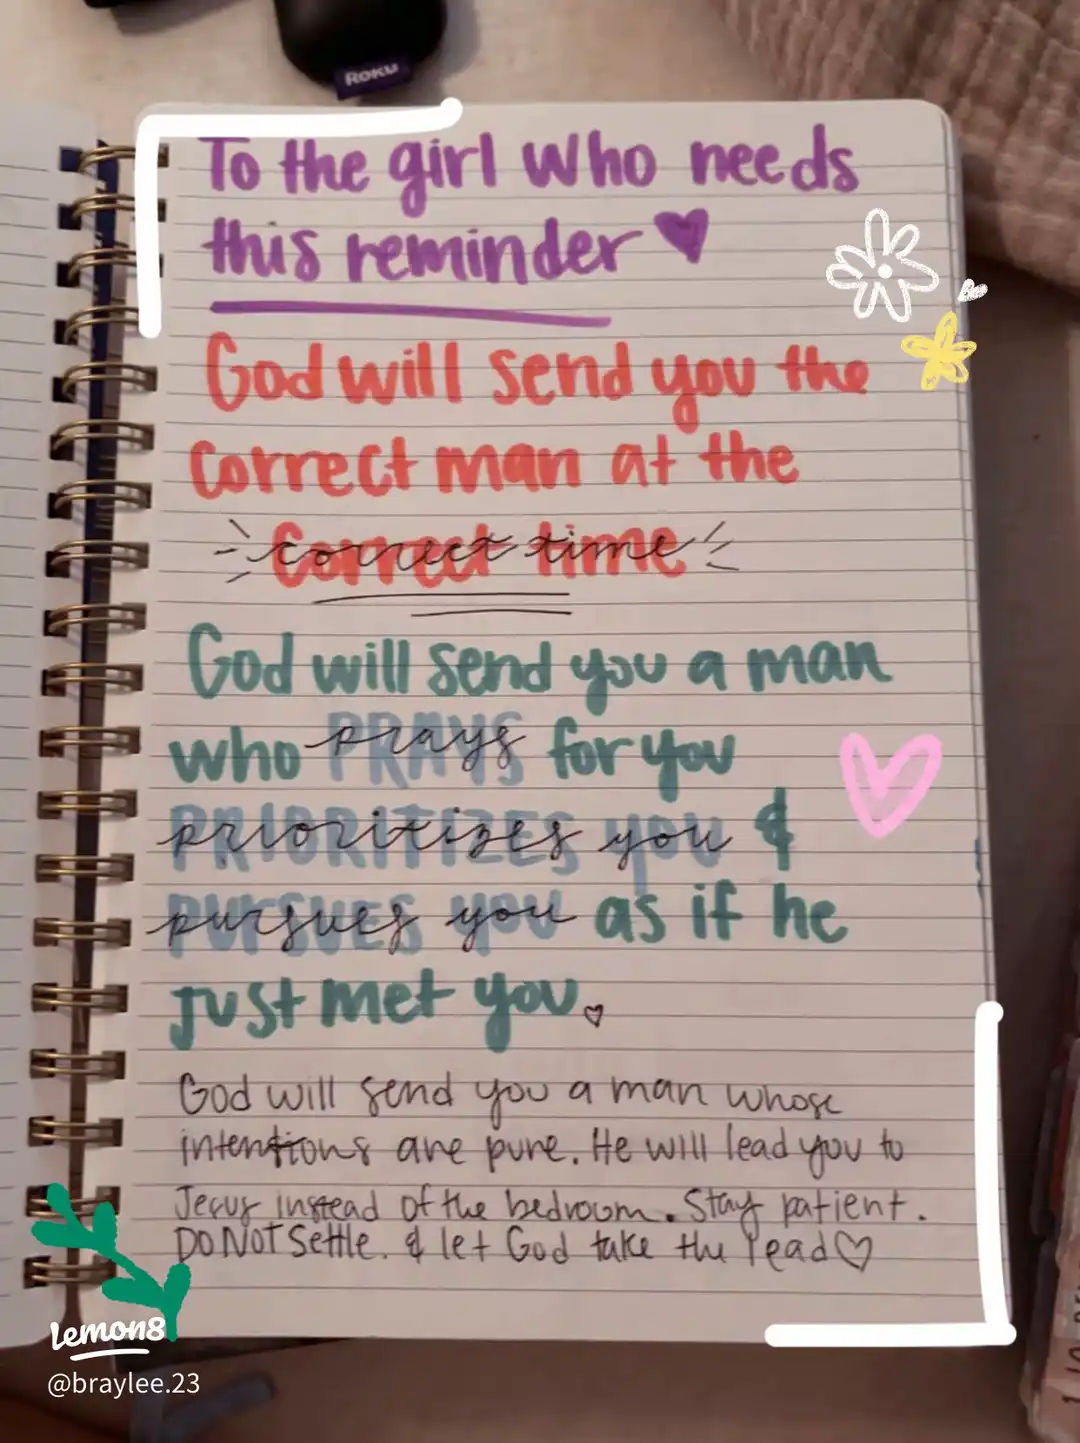 ROKU
To the girl who needs
this reminder
God will send you the
correct man at the
correct time
God will send you a man
who PRAYS for you
PRIORITIZES you &
PURSUES you as if he
just met you.
God will send you a man whose
intentions are pure. He will lead you to
Jesus instead of the bedroom. Stay patient.
DO NOT Settle. & let God take the lead
Lemon8
@braylee.23